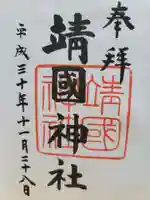 奉拝
靖國神社
平成三十年十一月二十八日
靖國
神社